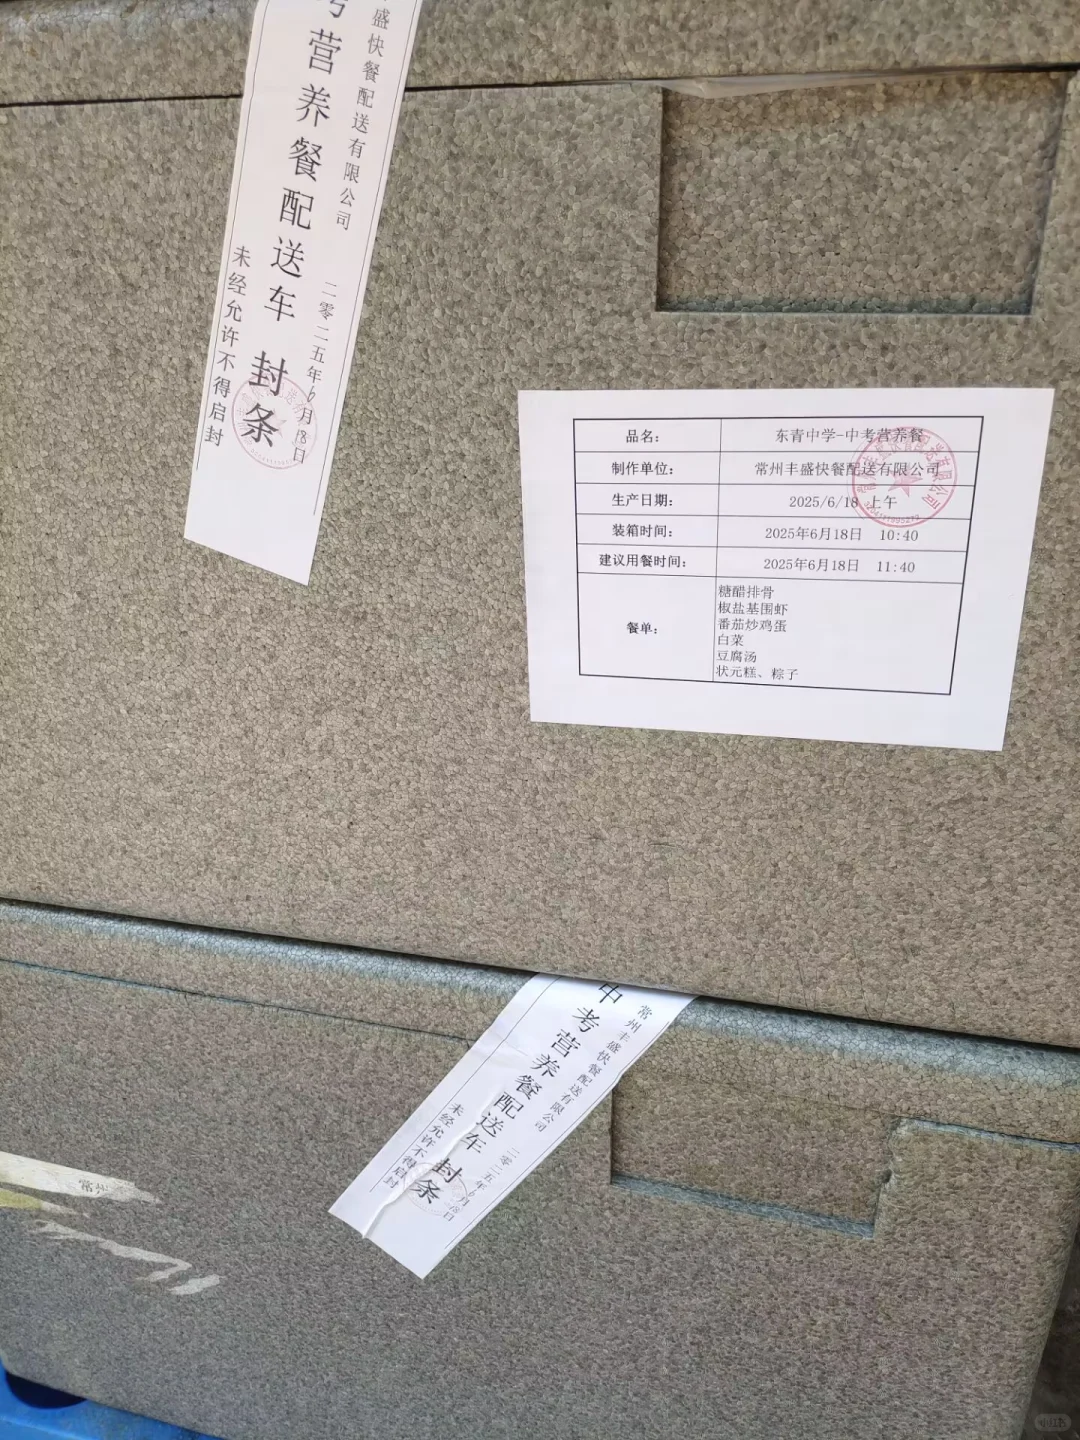 营养餐配送车 封条
盛快餐配送有限公司 二零二五年6月18日
未经允许不得启封
品名: 东青中学-中考营养餐
制作单位: 常州丰盛快餐配送有限公司
生产日期: 2025/6/18 上午
装箱时间: 2025年6月18日 10:40
建议用餐时间: 2025年6月18日 11:40
餐单:
糖醋排骨
椒盐基围虾
番茄炒鸡蛋
白菜
豆腐汤
状元糕、粽子
常州丰盛快餐配送有限公司 二零二五年6月18日
中考营养餐配送车 封条
未经允许不得启封
小红书